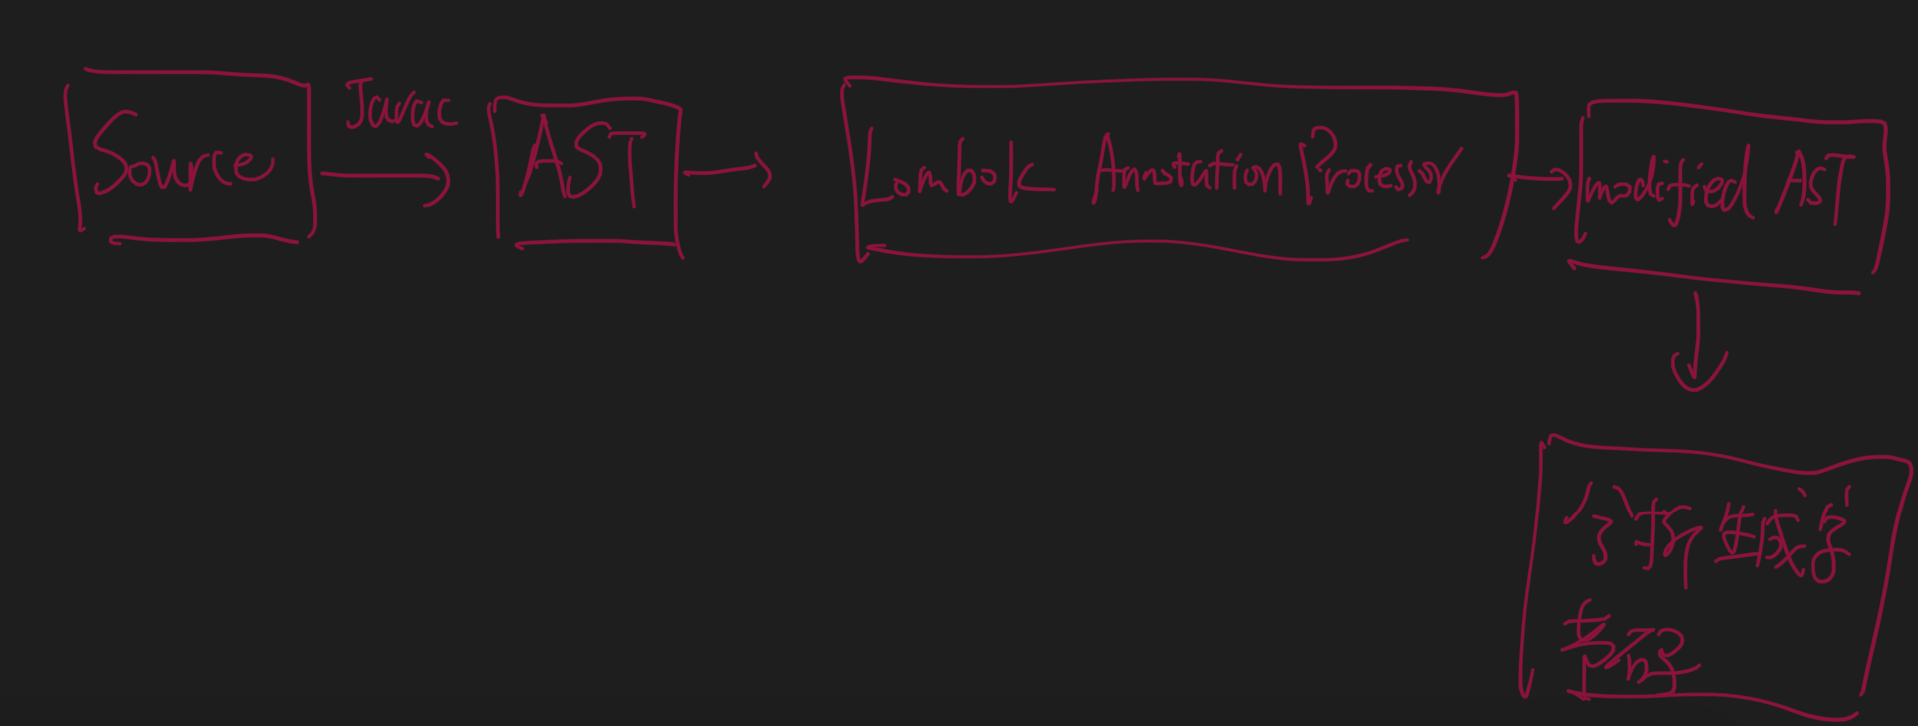 Source
Javac
AST
Lombok Annotation Processor
modified AST
分析 生成字
节码